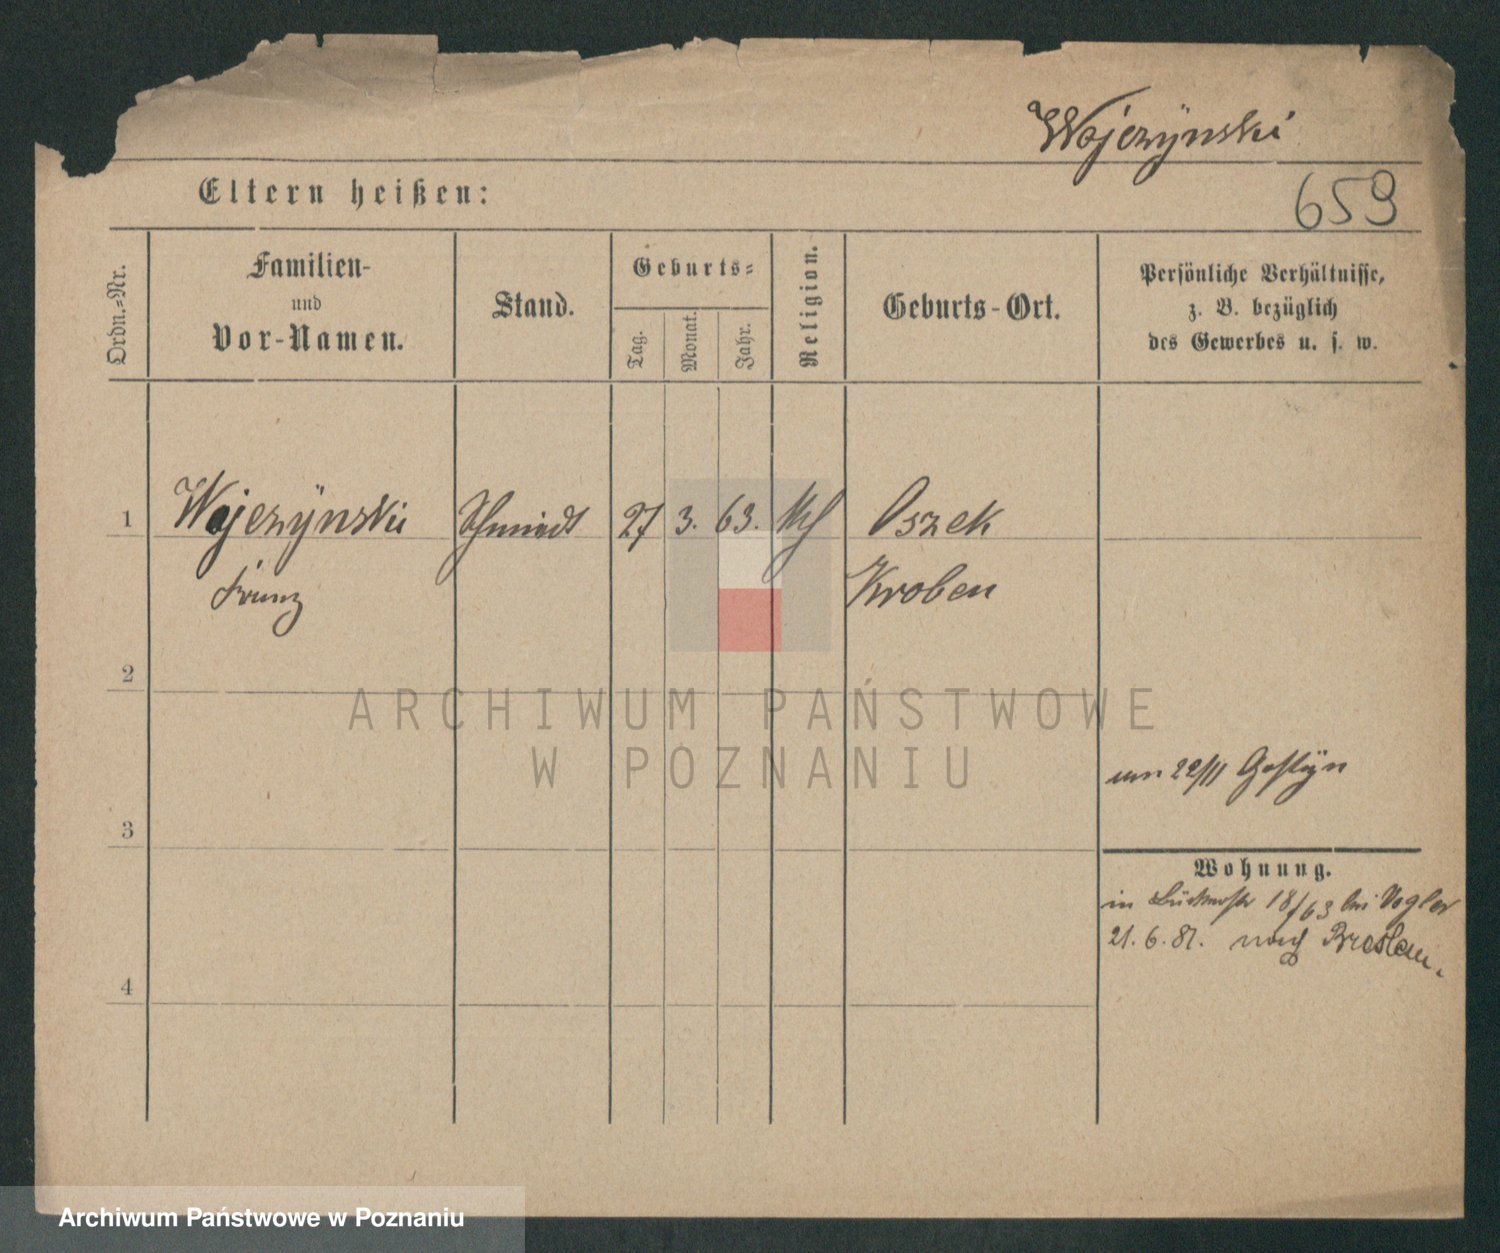 Wojczÿnski
659
Eltern heißen:
Ordn.-Nr.
Familien-
und
Vor-Namen.
Stand.
Geburts-
Tag.
Monat.
Jahr.
Religion.
Geburts-Ort.
Persönliche Verhältnisse,
z. B. bezüglich
des Gewerbes u. s. w.
1
Wojczÿnski
Schmiedt
27
3.
63.
Oszek
Franz
Kroben
2
ARCHIWUM PAŃSTWOWE
W POZNANIU
22/11 Gostÿn
3
Wohnung.
in 18/63 bei Vogler
21. 6. 81. nach Breslau.
4
Archiwum Państwowe w Poznaniu